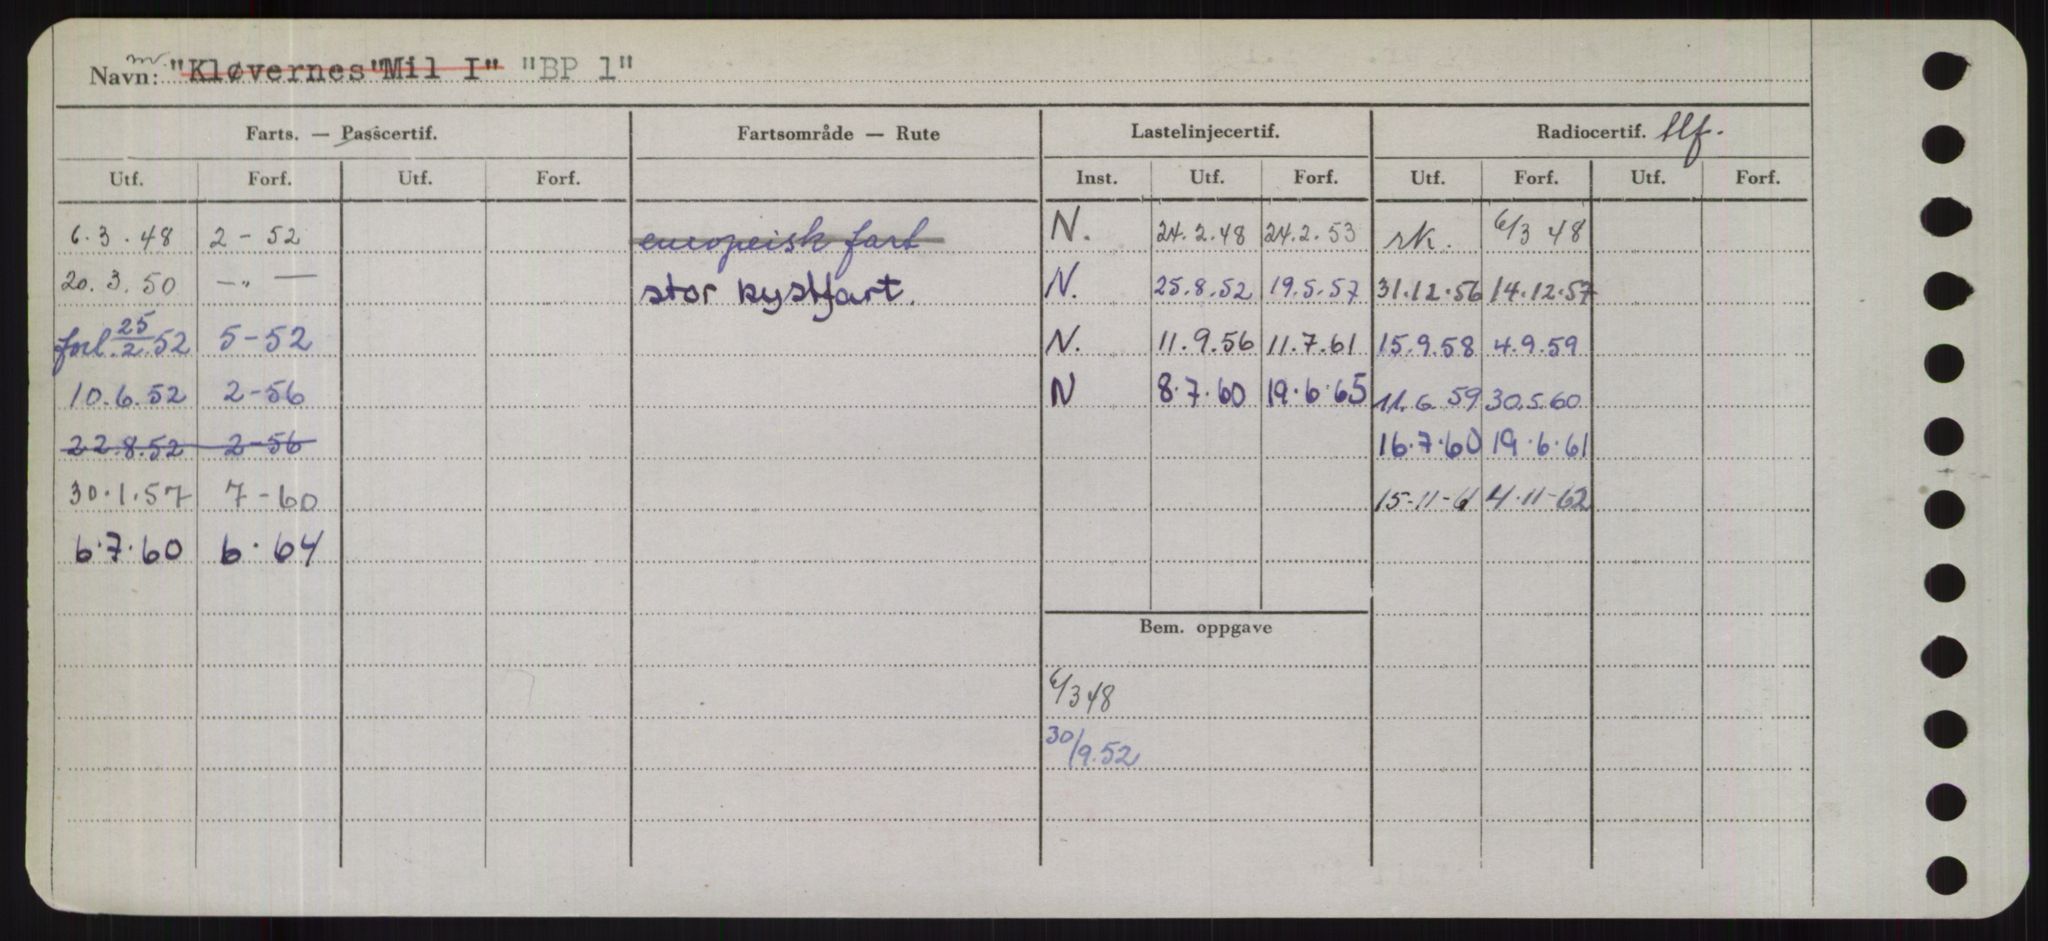 Navn: m "Kløvernes" "Mil I" "BP 1"
Farts. — Passcertif. Fartsområde — Rute Lastelinjecertif. Radiocertif. tlf.
Utf. Forf. Utf. Forf. Inst. Utf. Forf. Utf. Forf. Utf. Forf.
6.3.48 2-52 europeisk fart N. 24.2.48 24.2.53 rk. 6/3 48
20.3.50 —"— stor kystfart. N. 25.8.52 19.5.57 31.12.56 14.12.57
forl. 25/2.52 5-52 N. 11.9.56 11.7.61 15.9.58 4.9.59
10.6.52 2-56 N 8.7.60 19.6.65 11.6.59 30.5.60
22.8.52 2-56 16.7.60 19.6.61
30.1.57 7-60 15-11-61 4.11-62
6.7.60 6.64
Bem. oppgave
6/3 48
30/9.52